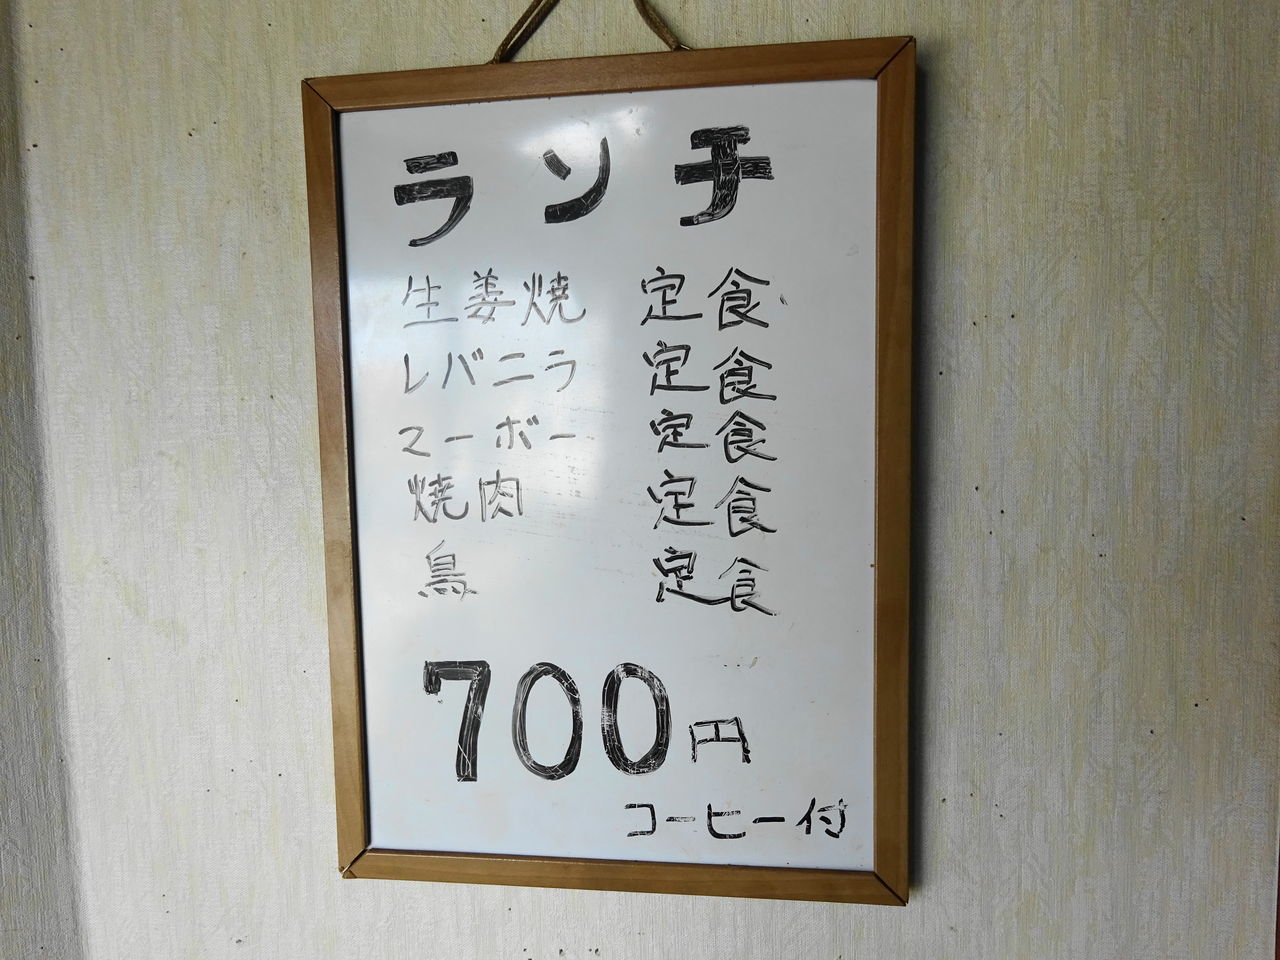 ランチ
生姜焼 定食
レバニラ 定食
マーボー 定食
焼肉 定食
鳥 定食
700円
コーヒー付